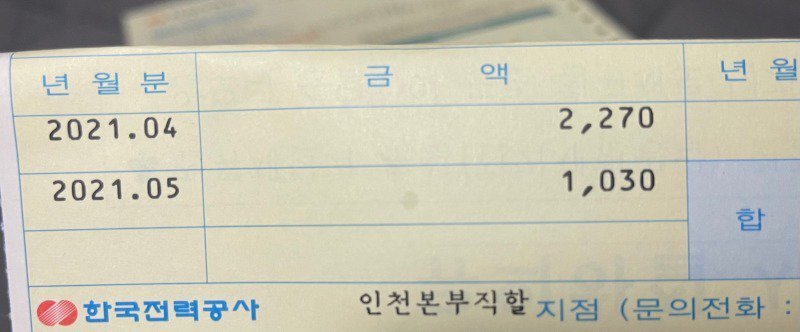 년 월 분 금 액 년 월
2021.04 2,270
2021.05 1,030
합
한국전력공사 인천본부직할 지점 (문의전화 :